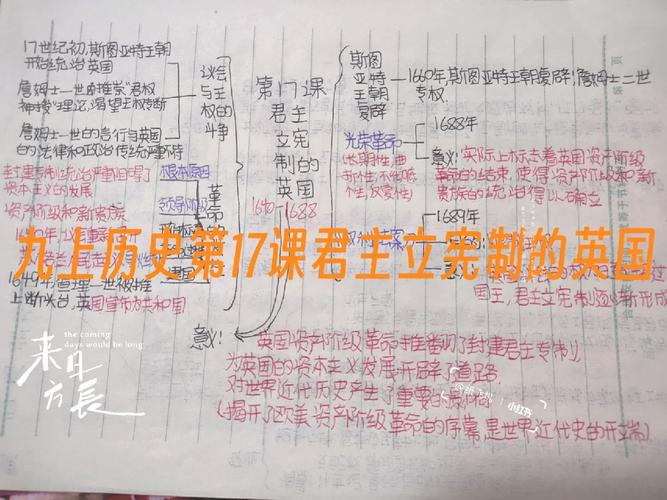 17世纪初,斯图亚特王朝
开始统治英国
詹姆士一世由推崇"君权
神授"理论,渴望王权专断
詹姆士一世的言行与英国
的法律和政治传统严重不符
议会与王权的斗争
封建专制统治严重阻碍了
资本主义的发展
根本原因
资产阶级和新贵族
领导阶级
革命
1649年,查理一世被推
上断头台,英国宣布为共和国
第17课
君主立宪制的英国
1640-1688
斯图亚特王朝复辟
1660年,斯图亚特王朝复辟,詹姆士二世
专权
光荣革命
1688年
意义:实际上标志着英国资产阶级
革命的结束,使得资产阶级和新
贵族的统治得以确立
1689年
国王,君主立宪制逐渐形成
九上历史第17课君主立宪制的英国
意义:
英国资产阶级革命推翻了封建君主专制
为英国的资本主义发展开辟了道路
对世界近代历史产生了重要的影响
(揭开了欧美资产阶级革命的序幕,是世界近代史的开端)
来日方長
the coming
days would be long
小红书